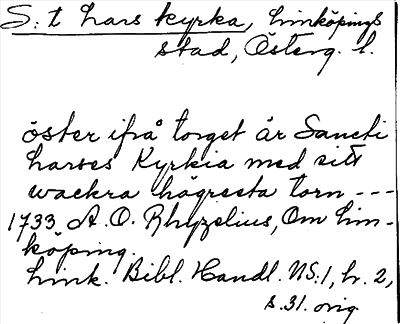 S:t Lars kyrka, Linköpings
stad, Österg. l.
öster ifrå torget är Sancti
Larses Kyrkia med sitt
wackra högresta torn ---
1733 A. O. Rhyzelius, Om Lin-
köping.
Link. Bibl. Handl. NS:1, h. 2,
s. 31. orig